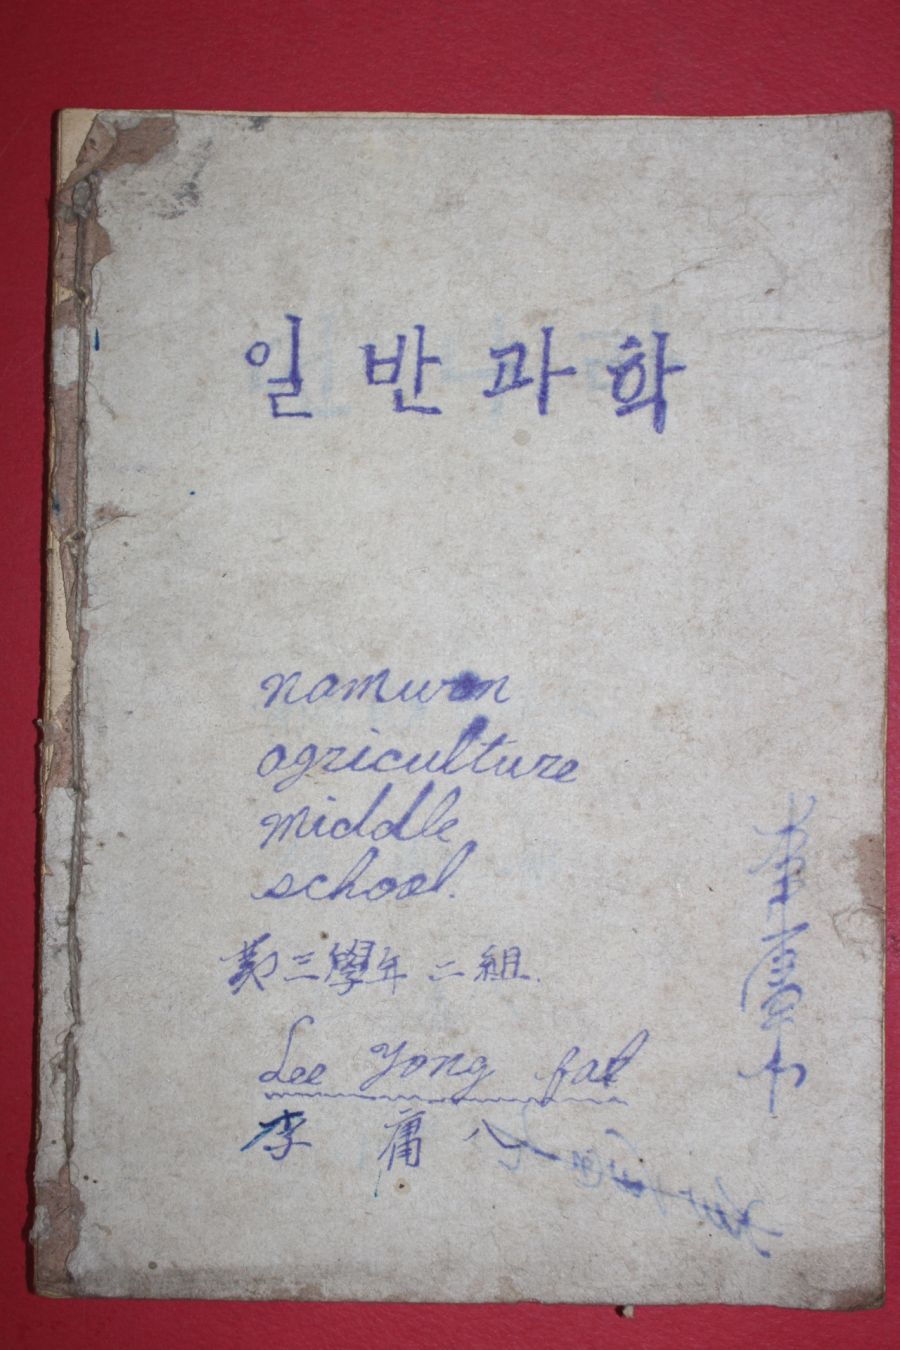 일반과학
namwon
agriculture
middle
school.
三學年 二組.
Lee Yong fal
李 庸 八